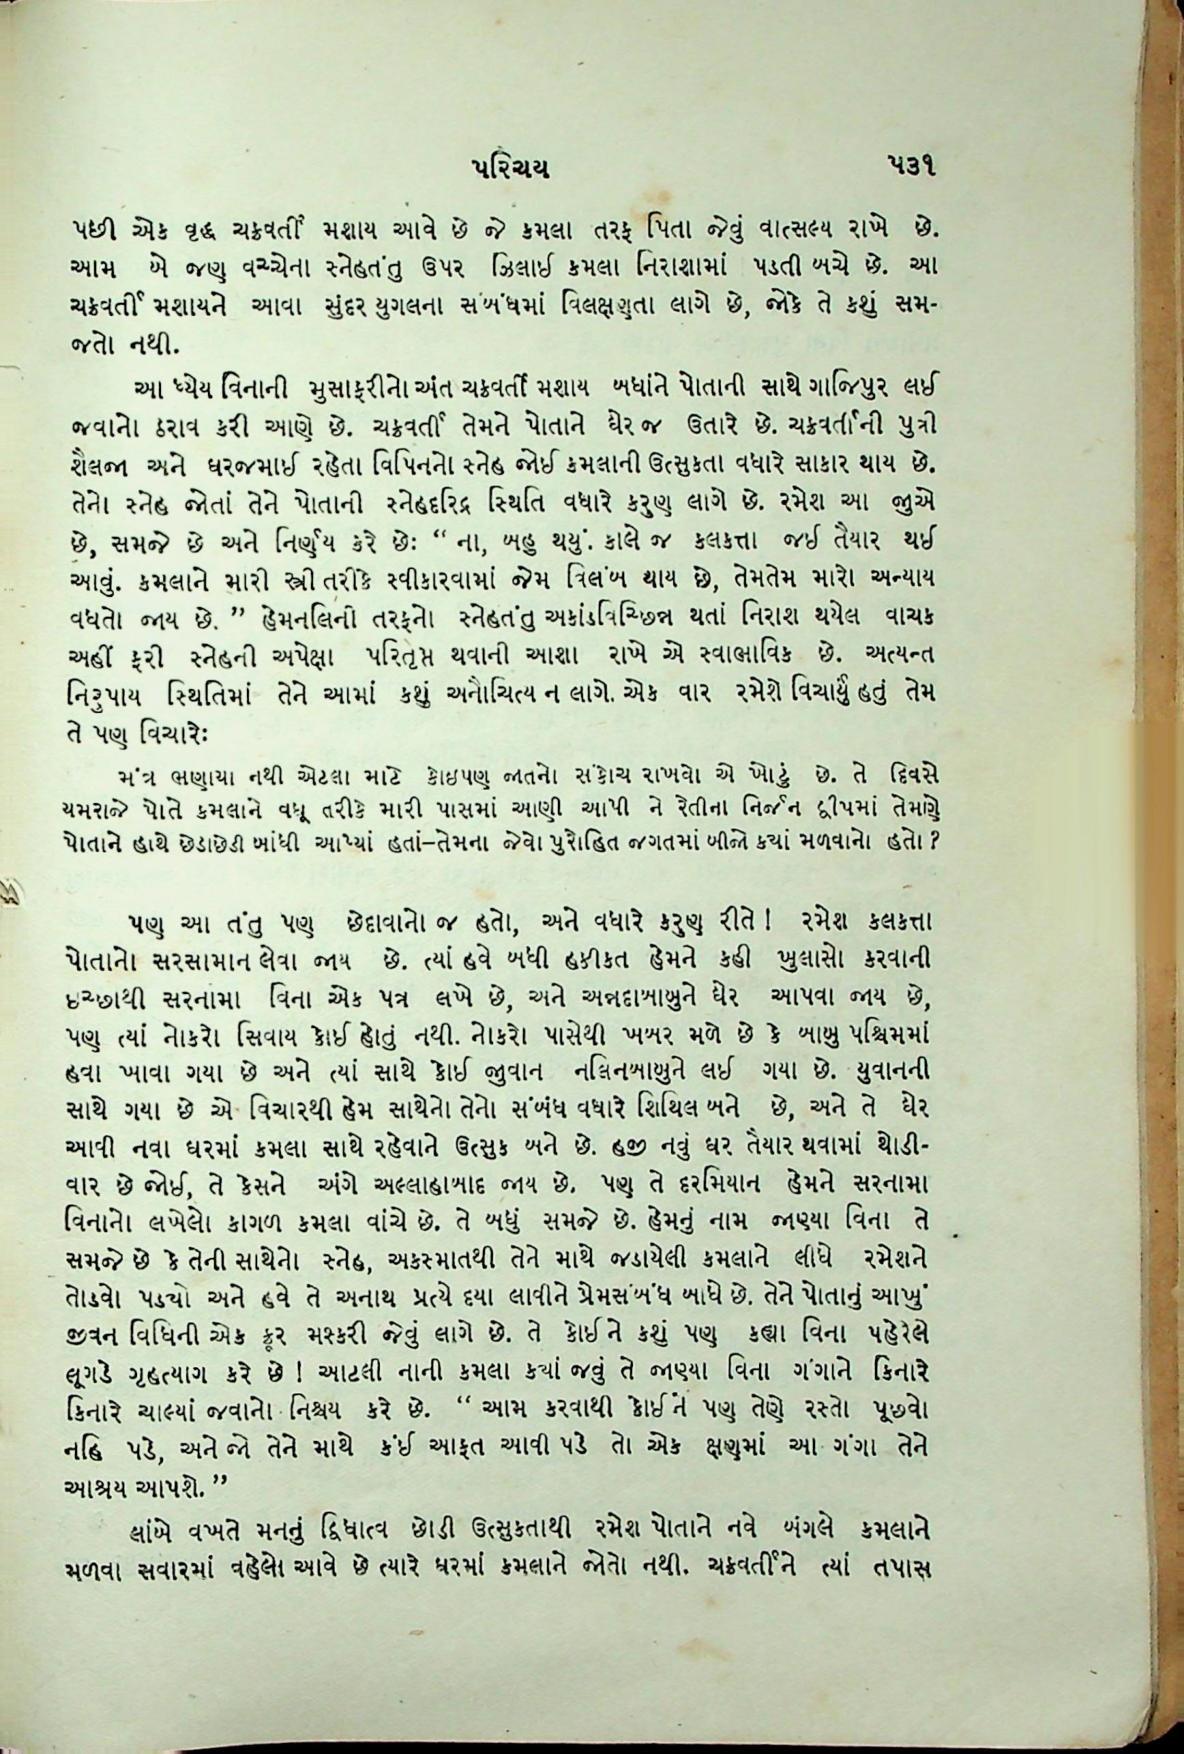 પરિચય ૫૩૧
પછી એક વૃદ્ધ ચક્રવર્તી મશાય આવે છે જે કમલા તરફ પિતા જેવું વાત્સલ્ય રાખે છે.
આમ બે જણ વચ્ચેના સ્નેહતંતુ ઉપર ઝિલાઈ કમલા નિરાશામાં પડતી બચે છે. આ
ચક્રવર્તી મશાયને આવા સુંદર યુગલના સંબંધમાં વિલક્ષણતા લાગે છે, જોકે તે કશું સમ-
જતો નથી.
આ ધ્યેય વિનાની મુસાફરીનો અંત ચક્રવર્તી મશાય બધાંને પોતાની સાથે ગાજિપુર લઈ
જવાનો ઠરાવ કરી આણે છે. ચક્રવર્તી તેમને પોતાને ઘેર જ ઉતારે છે. ચક્રવર્તીની પુત્રી
શૈલજા અને ઘરજમાઈ રહેતા વિપિનનો સ્નેહ જોઈ કમલાની ઉત્સુકતા વધારે સાકાર થાય છે.
તેનો સ્નેહ જોતાં તેને પોતાની સ્નેહદરિદ્ર સ્થિતિ વધારે કરુણ લાગે છે. રમેશ આ જુએ
છે, સમજે છે અને નિર્ણય કરે છેઃ “ ના, બહુ થયું. કાલે જ કલકત્તા જઈ તૈયાર થઈ
આવું. કમલાને મારી સ્ત્રી તરીકે સ્વીકારવામાં જેમ વિલંબ થાય છે, તેમતેમ મારો અન્યાય
વધતો જાય છે. ” હેમનલિની તરફનો સ્નેહતંતુ અકાંડવિચ્છિન્ન થતાં નિરાશ થયેલ વાચક
અહીં ફરી સ્નેહની અપેક્ષા પરિતૃપ્ત થવાની આશા રાખે એ સ્વાભાવિક છે. અત્યન્ત
નિરુપાય સ્થિતિમાં તેને આમાં કશું અનૌચિત્ય ન લાગે. એક વાર રમેશે વિચાર્યું હતું તેમ
તે પણ વિચારેઃ
મંત્ર ભણાયા નથી એટલા માટે કોઇપણ જાતનો સંકોચ રાખવો એ ખોટું છે. તે દિવસે
યમરાજે પોતે કમલાને વધૂ તરીકે મારી પાસમાં આણી આપી ને રેતીના નિર્જન દ્વીપમાં તેમણે
પોતાને હાથે છેડાછેડી બાંધી આપ્યાં હતાં–તેમના જેવો પુરોહિત જગતમાં બીજો કયાં મળવાનો હતો ?
પણ આ તંતુ પણ છેદાવાનો જ હતો, અને વધારે કરુણ રીતે ! રમેશ કલકત્તા
પોતાનો સરસામાન લેવા જાય છે. ત્યાં હવે બધી હકીકત હેમને કહી ખુલાસો કરવાની
ઇચ્છાથી સરનામા વિના એક પત્ર લખે છે, અને અન્નદાબાબુને ઘેર આપવા જાય છે,
પણ ત્યાં નોકરો સિવાય કોઈ હોતું નથી. નોકરો પાસેથી ખબર મળે છે કે બાબુ પશ્ચિમમાં
હવા ખાવા ગયા છે અને ત્યાં સાથે કોઈ જુવાન નલિનબાબુને લઈ ગયા છે. યુવાનની
સાથે ગયા છે એ વિચારથી હેમ સાથેનો તેનો સંબંધ વધારે શિથિલ બને છે, અને તે ઘેર
આવી નવા ઘરમાં કમલા સાથે રહેવાને ઉત્સુક બને છે. હજી નવું ઘર તૈયાર થવામાં થોડી-
વાર છે જોઈ, તે કેસને અંગે અલ્લાહાબાદ જાય છે. પણ તે દરમિયાન હેમને સરનામા
વિનાનો લખેલો કાગળ કમલા વાંચે છે. તે બધું સમજે છે. હેમનું નામ જાણ્યા વિના તે
સમજે છે કે તેની સાથેનો સ્નેહ, અકસ્માતથી તેને માથે જડાયેલી કમલાને લીધે રમેશને
તોડવો પડયો અને હવે તે અનાથ પ્રત્યે દયા લાવીને પ્રેમસંબંધ બાધે છે. તેને પોતાનું આખું
જીવન વિધિની એક ક્રૂર મશ્કરી જેવું લાગે છે. તે કોઈને કશું પણ કહ્યા વિના પહેરેલે
લૂગડે ગૃહત્યાગ કરે છે ! આટલી નાની કમલા કયાં જવું તે જાણ્યા વિના ગંગાને કિનારે
કિનારે ચાલ્યાં જવાનો નિશ્ચય કરે છે. “ આમ કરવાથી કોઈને પણ તેણે રસ્તો પૂછવો
નહિ પડે, અને જો તેને માથે કંઈ આફત આવી પડે તો એક ક્ષણમાં આ ગંગા તેને
આશ્રય આપશે. ”
લાંબે વખતે મનનું દ્વિધાત્વ છોડી ઉત્સુકતાથી રમેશ પોતાને નવે બંગલે કમલાને
મળવા સવારમાં વહેલો આવે છે ત્યારે ઘરમાં કમલાને જોતો નથી. ચક્રવર્તીને ત્યાં તપાસ